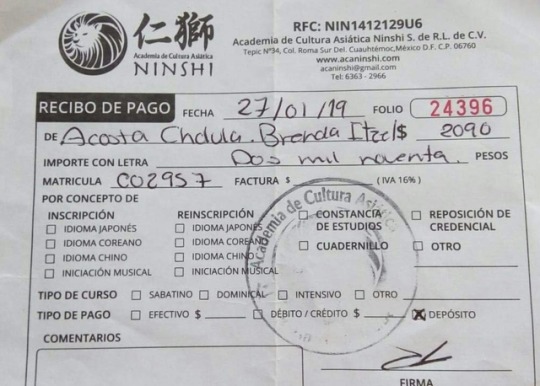 仁獅
Academia de Cultura Asiática
NINSHI
RFC: NIN1412129U6
Academia de Cultura Asiática Ninshi S. de R.L. de C.V.
Tepic N°34, Col. Roma Sur Del. Cuauhtémoc, México D.F. C.P. 06760
www.acaninshi.com
acaninshi@gmail.com
Tel: 6363 - 2966
RECIBO DE PAGO FECHA 27/01/19 FOLIO 24396
DE Acosta Cholula Brenda Itzel $ 2090
IMPORTE CON LETRA Dos mil noventa PESOS
MATRICULA C02957 FACTURA $ (IVA 16%)
POR CONCEPTO DE
INSCRIPCIÓN REINSCRIPCIÓN CONSTANCIA DE ESTUDIOS REPOSICIÓN DE CREDENCIAL
IDIOMA JAPONÉS IDIOMA JAPONÉS
IDIOMA COREANO IDIOMA COREANO CUADERNILLO OTRO
IDIOMA CHINO IDIOMA CHINO
INICIACIÓN MUSICAL INICIACIÓN MUSICAL
Academia de Cultura Asiática
TIPO DE CURSO SABATINO DOMINICAL INTENSIVO OTRO
TIPO DE PAGO EFECTIVO $ DÉBITO / CRÉDITO $ X DEPÓSITO
COMENTARIOS
FIRMA